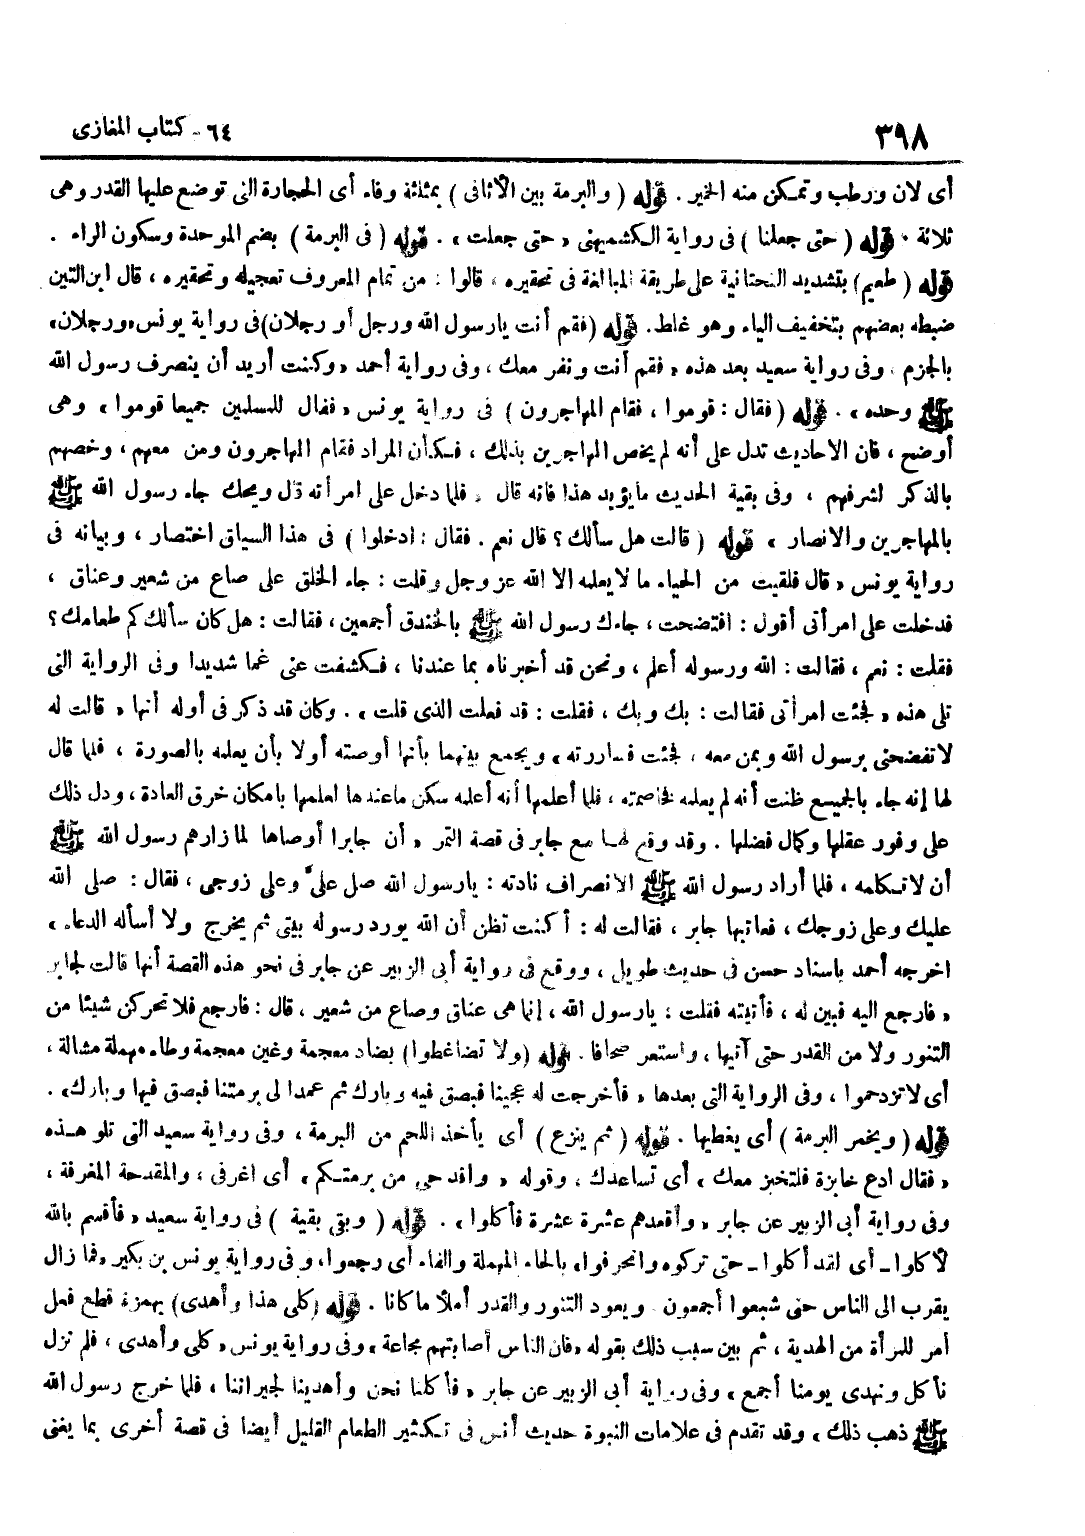 ٣٩٨
٦٤ - كتاب المغازى
أى لان ورطب وتمكن منه الخمير . قوله ( والبرمة بين الأثافى ) بمثلثة وفاء أى الحجارة التى توضع عليها القدر وهى
ثلاثة . قوله ( حتى جعلنا ) فى رواية الكشميهنى « حتى جعلت » . قوله ( فى البرمة ) بضم الموحدة وسكون الراء .
قوله ( طعيم ) بتشديد التحتانية على طريقة المبالغة فى تحقيره ، قالوا : من تمام المعروف تعجيله وتحقيره ، قال ابن التين
ضبطه بعضهم بتخفيف الياء وهو غلط . قوله ( فقم أنت يارسول الله ورجل أو رجلان ) فى رواية يونس « ورجلان »
بالجزم ، وفى رواية سعيد بعد هذه « فقم أنت ونفر معك ، وفى رواية أحمد « وكنت أريد أن ينصرف رسول الله
ﷺ وحده » . قوله ( فقال : قوموا ، فقام المهاجرون ) فى رواية يونس « فقال للمسلمين جميعا قوموا » وهى
أوضح ، فان الاحاديث تدل على أنه لم يخص المهاجرين بذلك ، فكأن المراد فقام المهاجرون ومن معهم ، وخصهم
بالذكر لشرفهم ، وفى بقية الحديث ما يؤيد هذا فانه قال « فلما دخل على امرأته قال ويحك جاء رسول الله ﷺ
بالمهاجرين والانصار » قوله ( قالت هل سألك ؟ قال نعم . فقال : ادخلوا ) فى هذا السياق اختصار ، وبيانه فى
رواية يونس « قال فلقيت من الحياء ما لا يعلمه الا الله عز وجل وقلت : جاء الخلق على صاع من شعير وعناق ،
فدخلت على امرأتى أقول : افتضحت ، جاءك رسول الله ﷺ بالخندق أجمعين ، فقالت : هل كان سألك كم طعامك ؟
فقلت : نعم ، فقالت : الله ورسوله أعلم ، ونحن قد أخبرناه بما عندنا ، فكشفت عنى غما شديدا وفى الرواية التى
تلى هذه « فجئت امرأتى فقالت : بك وبك ، فقلت : قد فعلت الذى قلت » . وكان قد ذكر فى أوله أنها « قالت له
لا تفضحنى برسول الله وبمن معه ، فجئت فساررته » ويجمع بينهما بأنها أوصته أولا بأن يعلمه بالصورة ، فلما قال
لها إنه جاء بالجميع ظنت أنه لم يعلمه فخاصمته ، فلما أعلمها أنه أعلمه سكن ما عندها لعلمها بامكان خرق العادة ، ودل ذلك
على وفور عقلها وكمال فضلها . وقد وقع لها مع جابر فى قصة التمر « أن جابرا أوصاها لما زارهم رسول الله ﷺ
أن لا تكلمه ، فلما أراد رسول الله ﷺ الانصراف نادته : يارسول الله صل علىّ وعلى زوجى ، فقال : صلى الله
عليك وعلى زوجك ، فعاتبها جابر ، فقالت له : أكنت تظن أن الله يورد رسوله بيتى ثم يخرج ولا أسأله الدعاء »
اخرجه أحمد باسناد حسن فى حديث طويل ، ووقع فى رواية أبى الزبير عن جابر فى نحو هذه القصة أنها قالت لجابر
« فارجع اليه فبين له ، فأتيته فقلت : يارسول الله ، إنما هى عناق وصاع من شعير ، قال : فارجع فلا تحركن شيئا من
التنور ولا من القدر حتى آتيها ، واستعر صحافا . قوله ( ولا تضاغطوا ) بضاد معجمة وغين معجمة وطاء مهملة مشالة ،
أى لا تزدحموا ، وفى الرواية التى بعدها « فأخرجت له عجينا فبصق فيه وبارك ثم عمدا لى برمتنا فبصق فيها وبارك » .
قوله ( ويخمر البرمة ) أى يغطيها . قوله ( ثم ينزع ) أى يأخذ اللحم من البرمة ، وفى رواية سعيد التى تلو هذه
« فقال ادع خابزة فلتخبز معك » أى تساعدك ، وقوله « واقدحى من برمتكم » أى اغرفى ، والمقدحة المغرفة ،
وفى رواية أبى الزبير عن جابر « وأقعدهم عشرة عشرة فأكلوا » . قوله ( وبقى بقية ) فى رواية سعيد « فأقسم بالله
لأكلوا - أى لقد أكلوا - حتى تركوه وانحرفوا » بالحاء المهملة والفاء أى رجعوا ، وفى رواية يونس بن بكير « فما زال
يقرب الى الناس حتى شبعوا أجمعون ويعود التنور والقدر أملأ ما كانا . قوله ( كلى هذا وأهدى ) بهمزة قطع فعل
أمر للمرأة من الهدية ، ثم بين سبب ذلك بقوله « فان الناس أصابتهم مجاعة » وفى رواية يونس « كلى وأهدى ، فلم نزل
نأكل ونهدى يومنا أجمع » وفى رواية أبى الزبير عن جابر « فأكلنا نحن وأهدينا لجيراننا ، فلما خرج رسول الله
ﷺ ذهب ذلك » وقد تقدم فى علامات النبوة حديث أنس فى تكثير الطعام القليل أيضا فى قصة أخرى بما يغنى